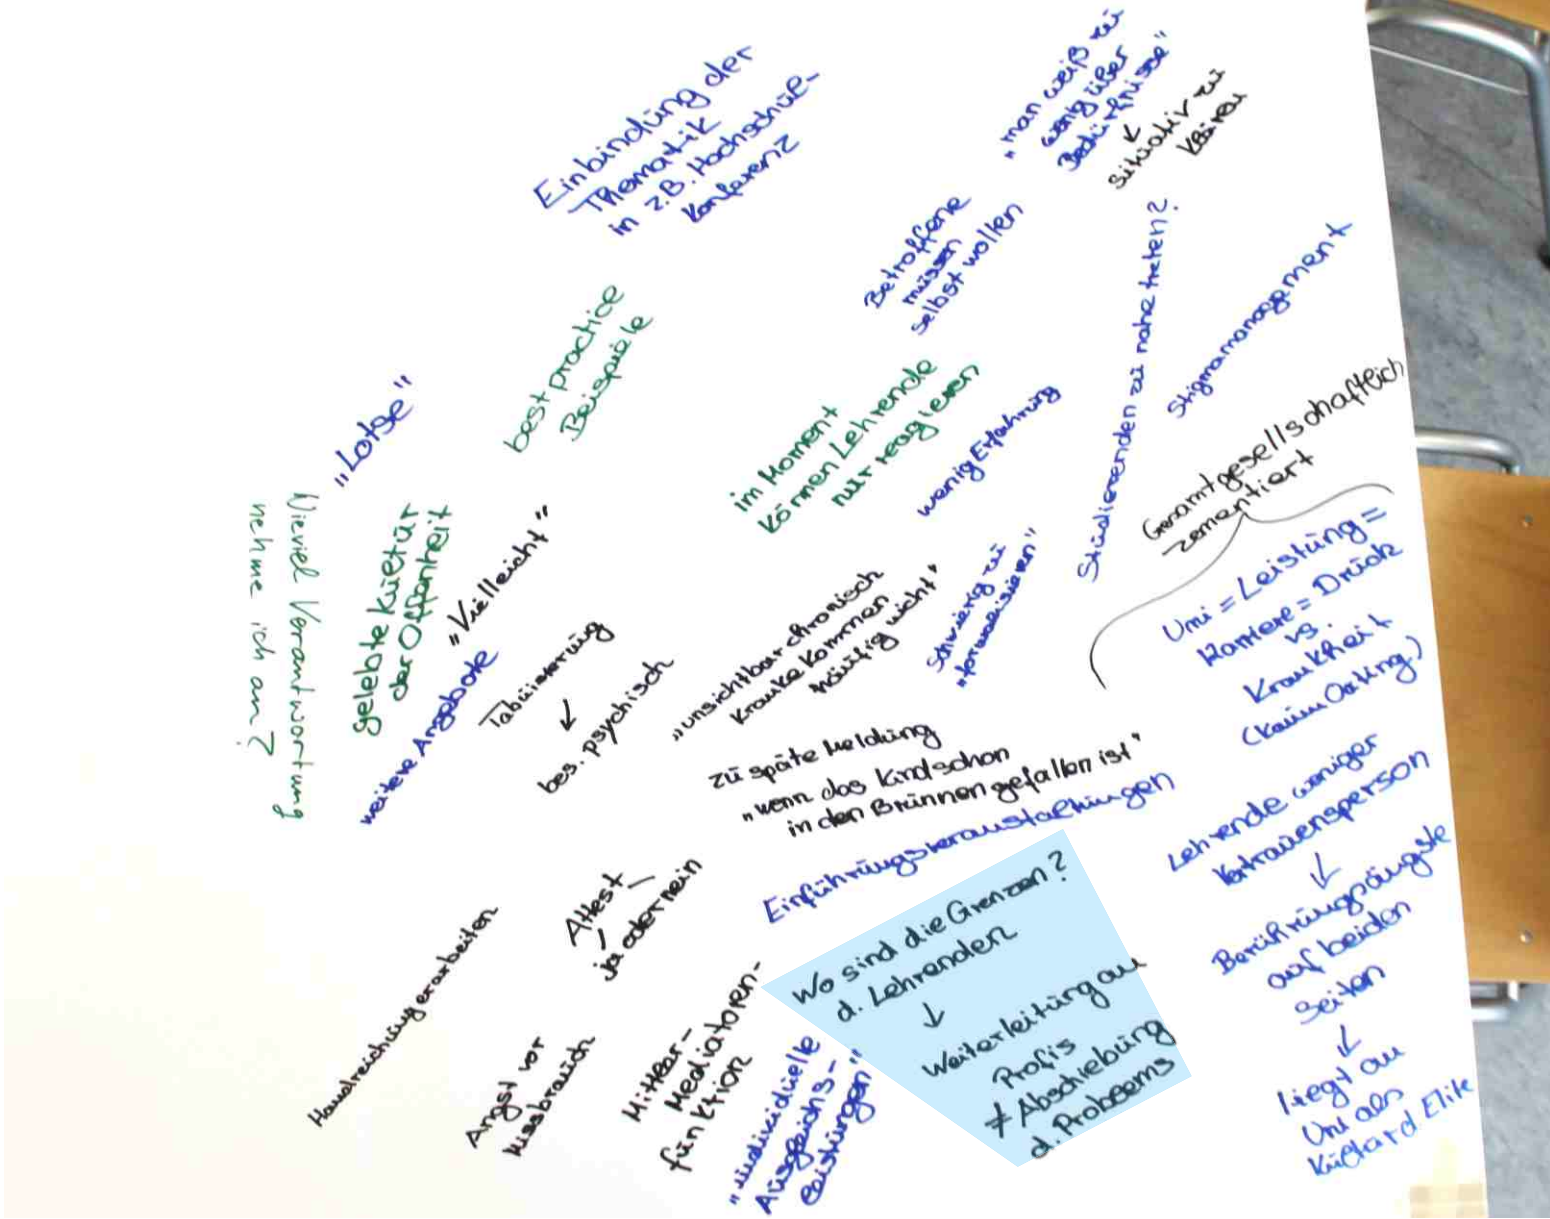 Einbindung der
Thematik
in z.B. Hochschul-
konferenz
„man weiß zu
wenig über
Bedürfnisse"
↙
situativ zu
klären
Betroffene
müssen
selbst wollen
Studierenden zu nahe treten?
Stigmamanagement
best practice
Beispiele
„Lotse"
im Moment
können Lehrende
nur reagieren
wenig Erfahrung
Gesamtgesellschaftlich
zementiert
Uni = Leistung =
Karriere = Druck
vs.
Krankheit
(kaum Outing)
Wieviel Verantwortung
nehme ich an?
gelebte Kultur
der Offenheit
„Vielleicht"
weitere Angebote
Tabuisierung
↓
bes. psychisch
„unsichtbar chronisch
Kranke kommen
häufig nicht"
Schwierig zu
„formalisieren"
zu späte Meldung
„wenn das Kind schon
in den Brunnen gefallen ist"
Einführungsveranstaltungen
Lehrende weniger
Vertrauensperson
↓
Berührungsängste
auf beiden
Seiten
↓
liegt an
Uni als
Elite
Handreichung erarbeiten
Attest
ja oder nein
Angst vor
Missbrauch
Mittler-
Mediatoren-
funktion
„individuelle
Ausgleichs-
leistungen"
Wo sind die Grenzen?
d. Lehrenden
↓
Weiterleitung an
Profis
≠ Abschiebung
d. Problems